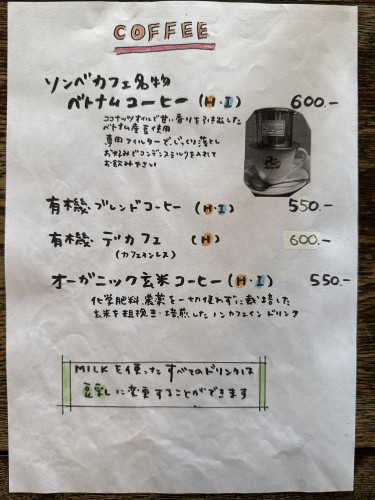 COFFEE
ソンベカフェ名物
ベトナムコーヒー (H・I) 600.-
ココナッツオイルで甘い香りを引き出した
ベトナム産豆使用
専用フィルターで、じっくり落とし
お好みでコンデンスミルクを入れて
お飲み下さい
有機・ブレンドコーヒー (H・I) 550.-
有機・デカフェ (H) 600.-
(カフェインレス)
オーガニック玄米コーヒー (H・I) 550.-
化学肥料、農薬を一切使わずに栽培した
玄米を粗挽き・焙煎したノンカフェインドリンク
MILKを使ったすべてのドリンクは
豆乳に変更することができます